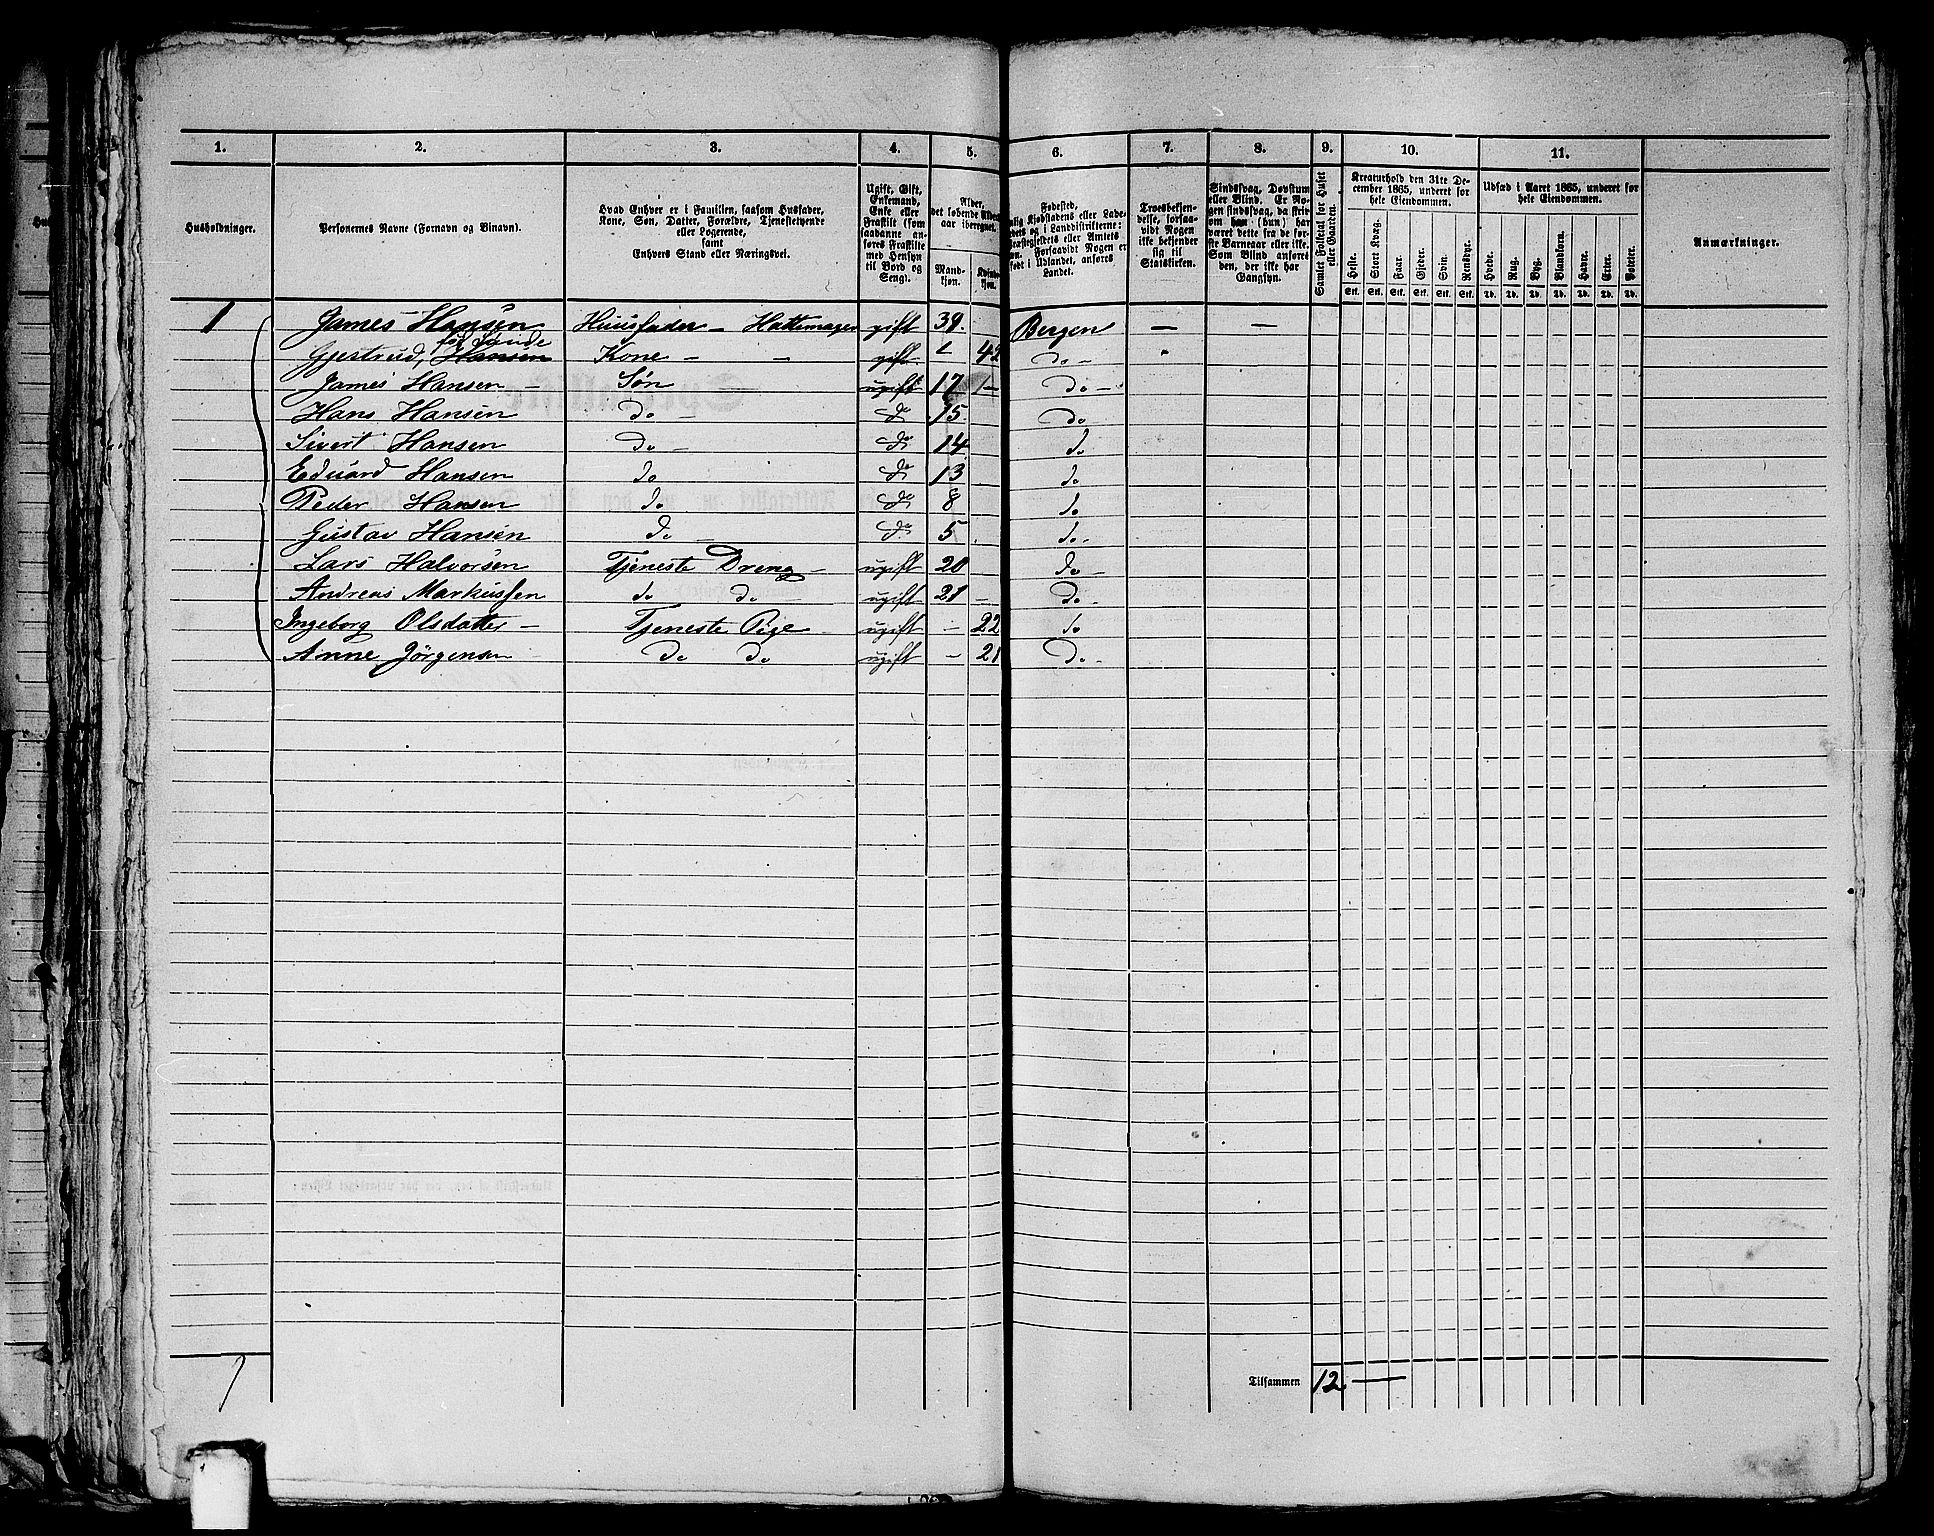 1. 2. 3. 4. 5. 6. 7. 8. 9. 10. 11.
Husholdninger.
Personernes Navne (Fornavn og Vinavn).
Hvad Enhver er i Familien, saasom Husfader,
Kone, Søn, Datter, Forældre, Tjenestetyende
eller Logerende,
samt
Enhvers Stand eller Næringsvei.
Ugift, Gift,
Enkemand,
Enke eller
Fraskilt (som
saadanne an-
føres Fraskilte
med Hensyn
til Bord og
Seng).
Alder,
det løbende Alders-
aar iberegnet.
Mand-
kjøn.
Kvinde-
kjøn.
Fødested,
Troesbekjen-
delse, forsaa-
vidt Nogen
ikke bekjender
sig til
Statskirken.
Sindssvag, Døvstum
eller Blind. Er No-
gen sindssvag, da skriv
om han (hun) har
været dette fra de før-
ste Barneaar eller ikke.
Som Blind anføres
den, der ikke har
Gangsyn.
Samlet Folketal for Huset
eller Gaarden.
Kreaturhold den 31te De-
cember 1865, underet for
hele Eiendommen.
Heste. Stort Kvæg. Faar. Gjeder. Svin. Rensdyr.
Stk. Stk. Stk. Stk. Stk. Stk.
Udsæd i Aaret 1865, underet for
hele Eiendommen.
Hvede. Rug. Byg. Blandkorn. Havre. Erter. Poteter.
Td. Td. Td. Td. Td. Td. Td.
Anmærkninger.
1 James Hansen Huusfader – Hattemager gift 39. Bergen — —
født Sunde
Gjertrud, Hansen Kone – – gift – 42 do –
James Hansen – Søn ugift 17 – do –
Hans Hansen do – do 15. do
Sivert Hansen do – do 14. do
Eduard Hansen do do 13 do
Peder Hansen do do 8 do
Gustav Hansen do do 5 do –
Lars Halvorsen Tjeneste Dreng – ugift 20 do –
Andreas Markussen do do ugift 21 – do –
Ingeborg Olsdatter – Tjeneste Pige – ugift – 22 do
Anne Jörgensen do do ugift – 21 do –
Tilsammen 12. —